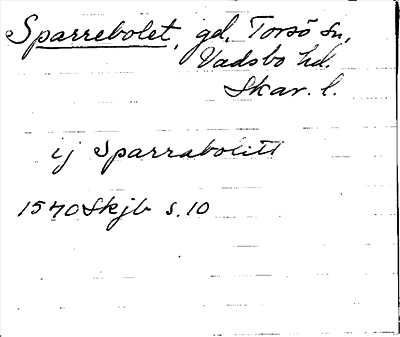 Sparrebolet, gd, Torsö sn,
Vadsbo hd.
Skar. l.
ij Sparrabolitt
1540 Skjb s. 10